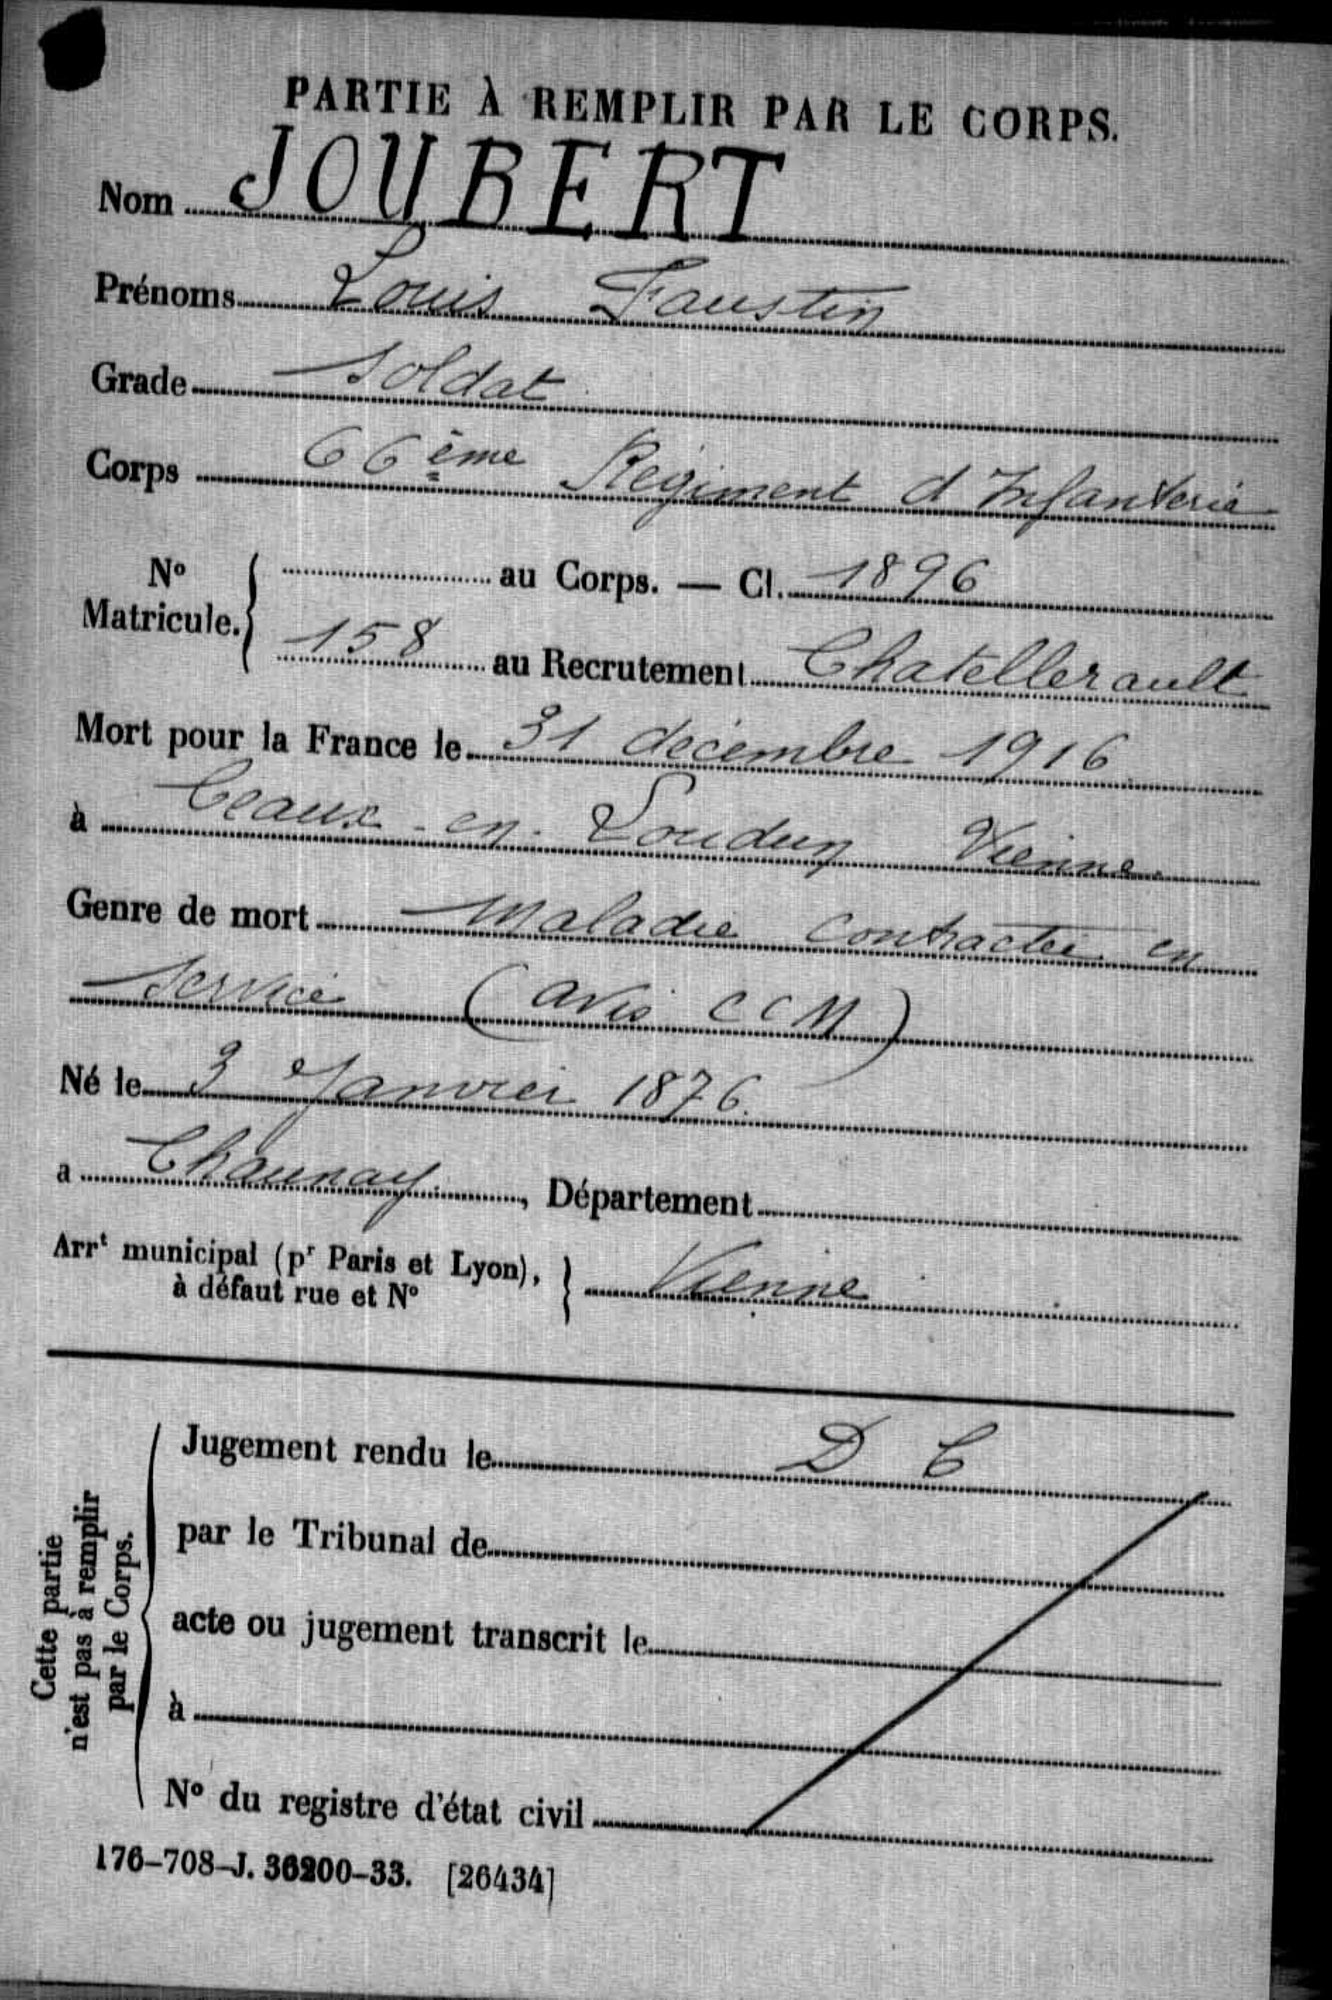 PARTIE À REMPLIR PAR LE CORPS.
Nom JOUBERT
Prénoms Louis Faustin
Grade Soldat
Corps 66ème Régiment d'Infanterie
N° Matricule. au Corps. — Cl. 1896
158 au Recrutement Chatellerault
Mort pour la France le 31 décembre 1916
à Ceaux-en-Loudun Vienne
Genre de mort Maladie contractée en
service (avis CCM)
Né le 3 Janvier 1876.
à Chaunay, Département
Arrt municipal (pr Paris et Lyon),
à défaut rue et N° Vienne
Cette partie
n'est pas à remplir
par le Corps.
Jugement rendu le D C
par le Tribunal de
acte ou jugement transcrit le
à
N° du registre d'état civil
176-708-J. 36200-33. [26434]